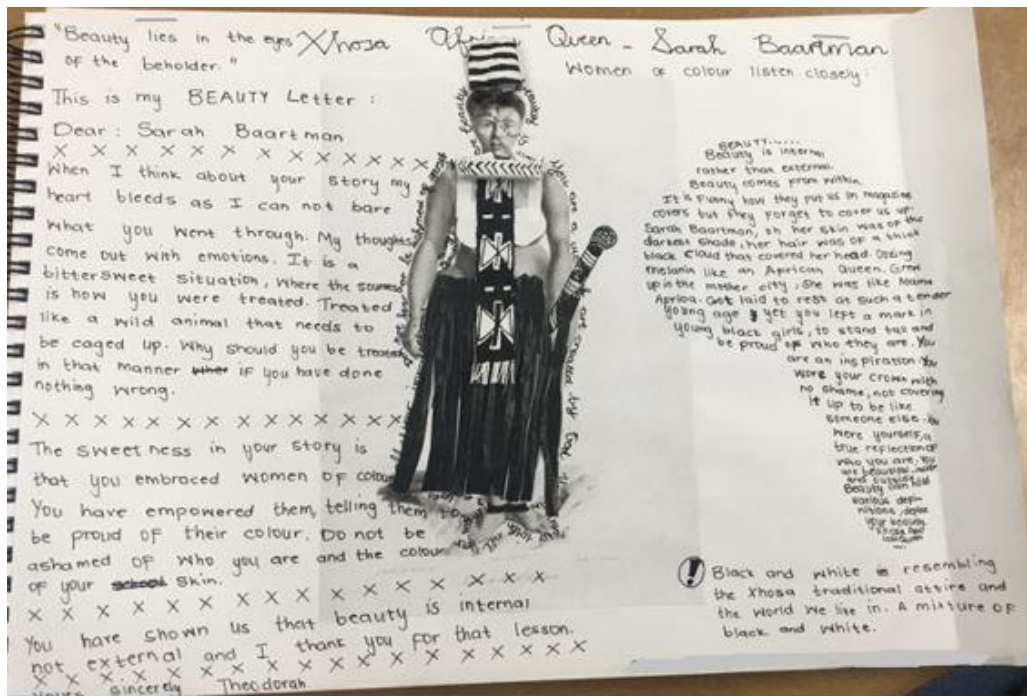 "Beauty lies in the eyes
of the beholder."
Xhosa African Queen - Sarah Baartman
Women of colour listen closely:
This is my BEAUTY Letter :
Dear : Sarah Baartman
X X X X X X X X X X X X X X
When I think about your story my
heart bleeds as I can not bare
what you went through. My thoughts
come out with emotions. It is a
bittersweet situation, where the sourness
is how you were treated. Treated
like a wild animal that needs to
be caged up. Why should you be treated
in that manner if you have done
nothing wrong.
X X X X X X X X X X X X X X
The sweetness in your story is
that you embraced women of colour
You have empowered them, telling them to
be proud of their colour. Do not be
ashamed of who you are and the colour
of your skin.
X X X X X X X X X X X X X
You have shown us that beauty is internal
not external and I thank you for that lesson.
X X X X X X X X X X X X X X
Yours sincerely Theodorah
BEAUTY......
Beauty is internal
rather than external.
Beauty comes from within.
It is funny how they put us in magazine
covers but they forget to cover us up.
Sarah Baartman, oh her skin was of the
darkest shade, her hair was of a thick
black cloud that covered her head. Oozing
melanin like an African Queen. Grew
up in the mother city, she was like Mama
Africa. Got laid to rest at such a tender
young age yet you left a mark in
young black girls, to stand tall and
be proud of who they are. You
are an inspiration. You
wore your crown with
no shame, not covering
it up to be like
someone else.
were yourself, a
true reflection of
who you are. You
are beautiful
and outside
Beauty can hold
various defi-
nitions, define
your beauty
Black and white is resembling
the Xhosa traditional attire and
the world we live in. A mixture of
black and white.